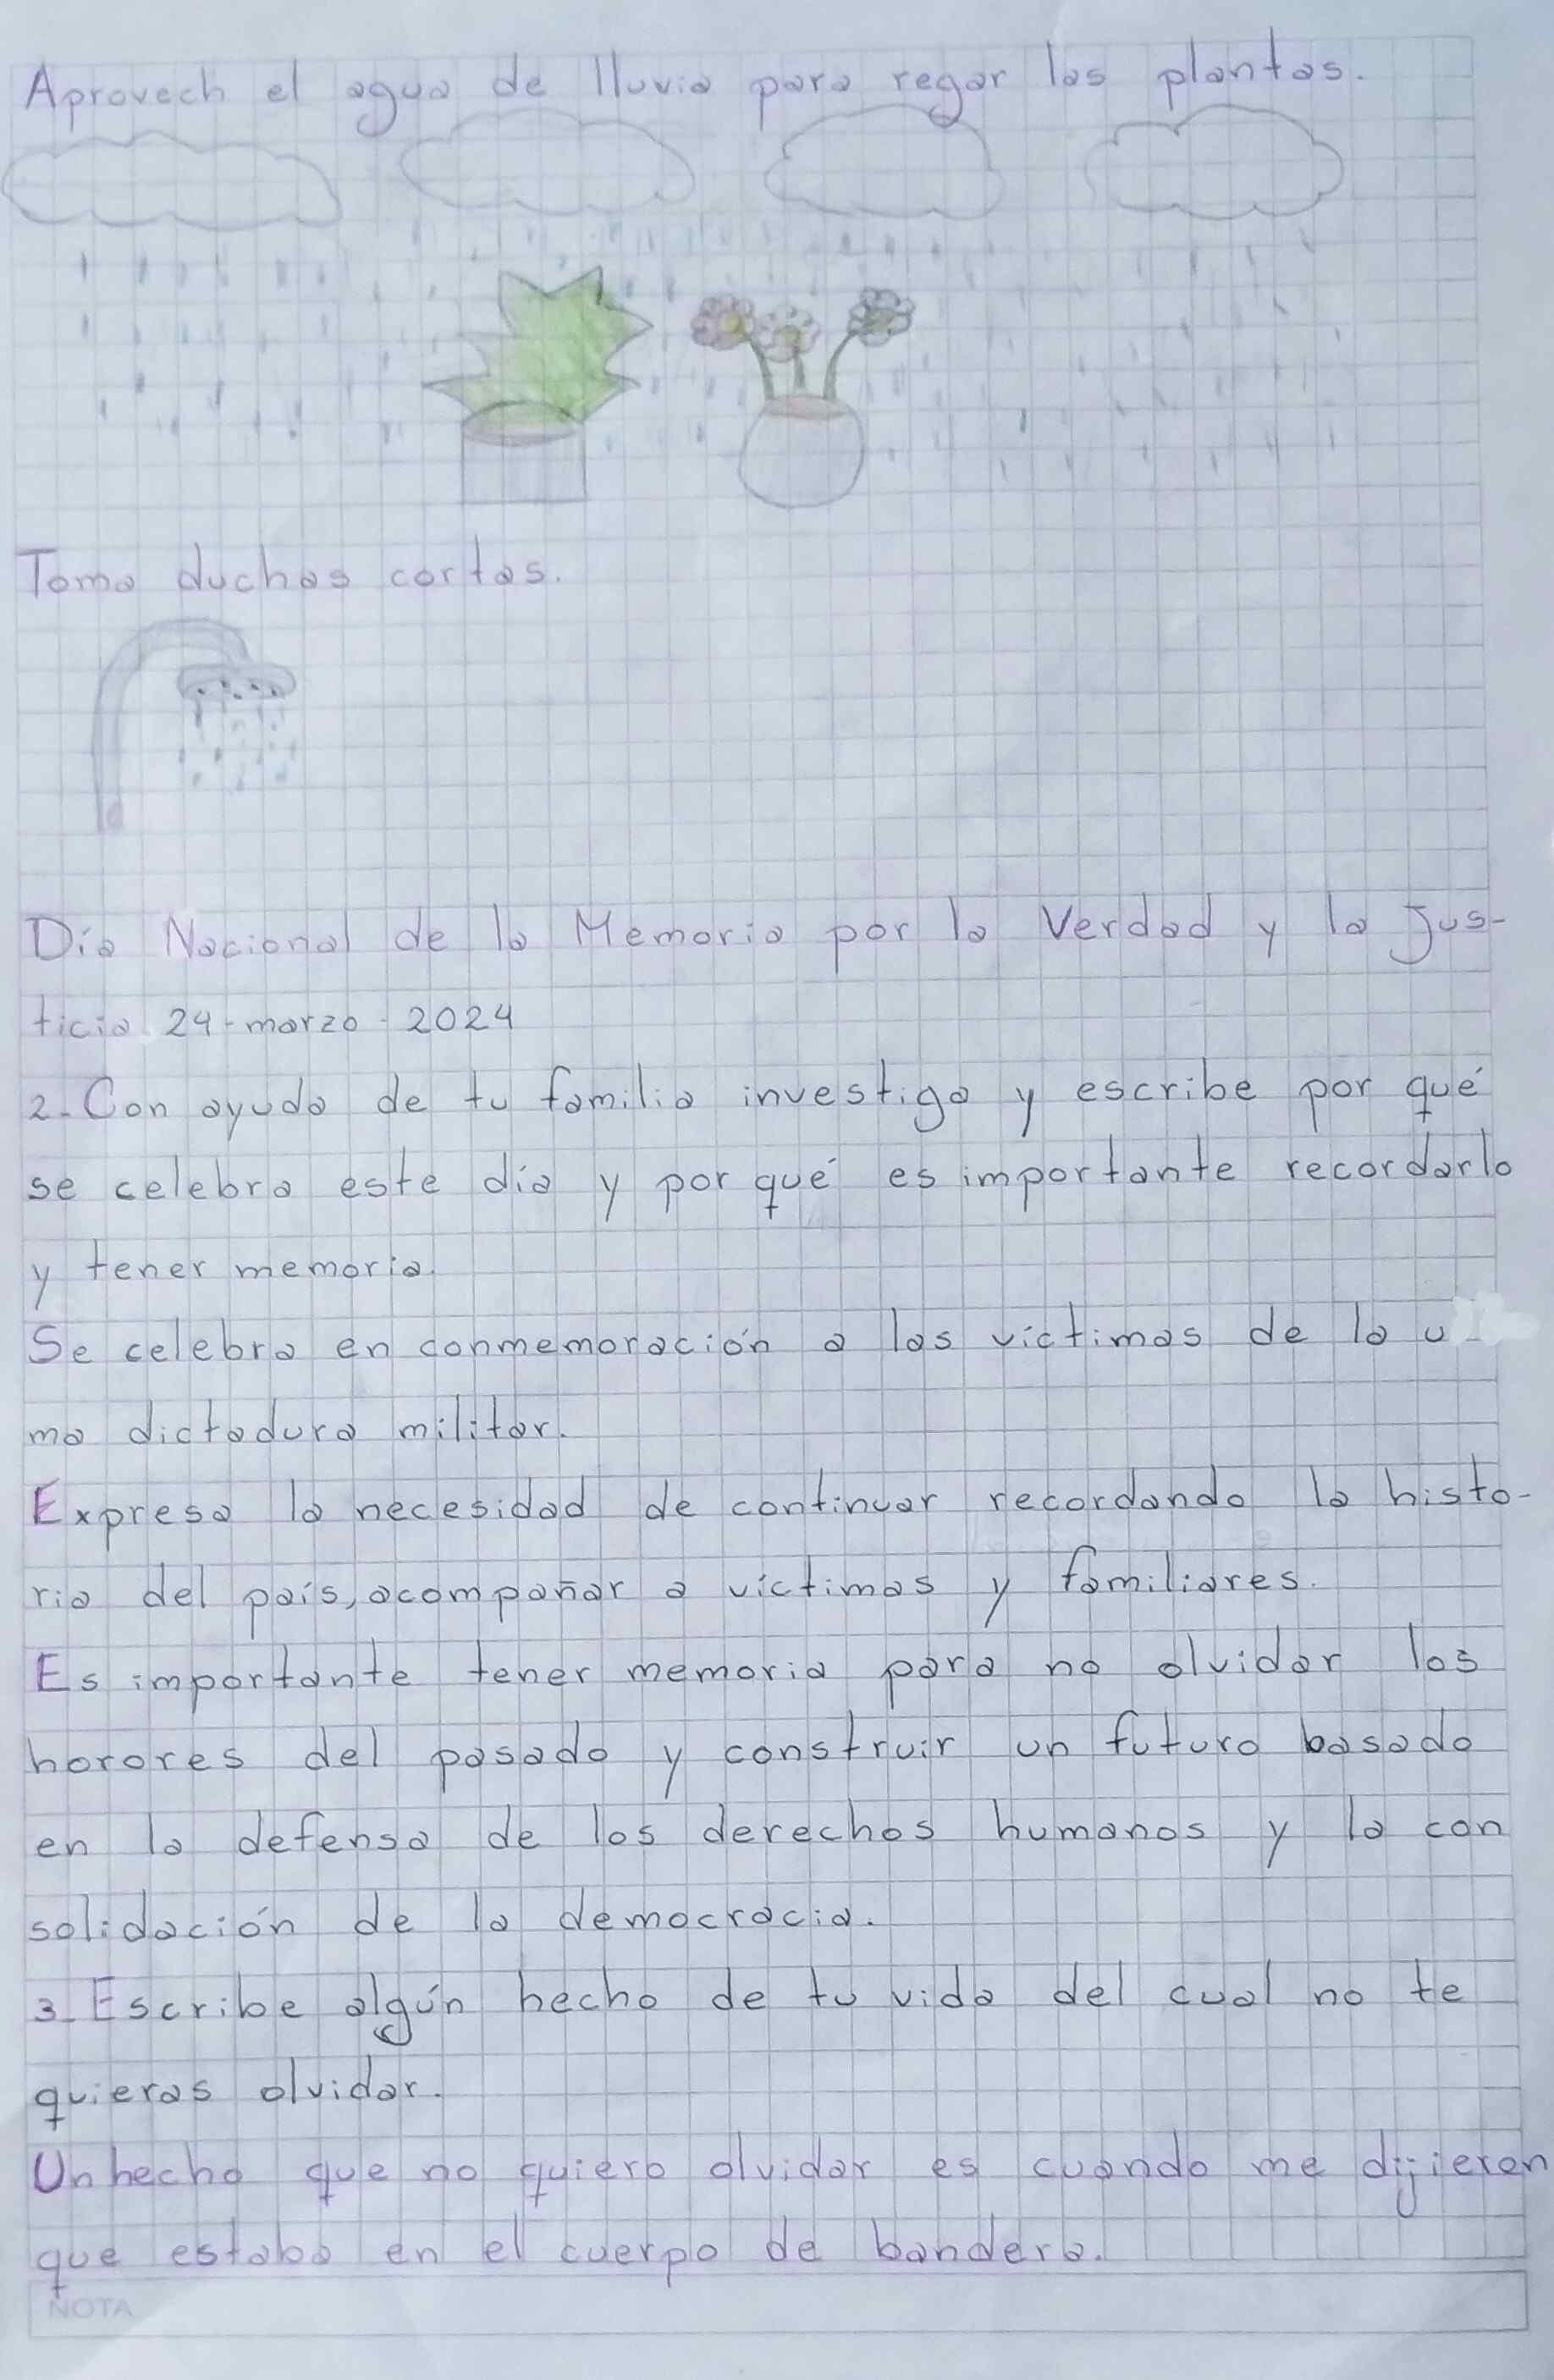 Aprovech el agua de lluvia para regar las plantas.
Toma duchas cortas.
Día Nacional de la Memoria por la Verdad y la Jus-
ticia. 24-marzo-2024
2. Con ayuda de tu familia investiga y escribe por qué
se celebra este día y por qué es importante recordarlo
y tener memoria.
Se celebra en conmemoración a las víctimas de la u
ma dictadura militar.
Expresa la necesidad de continuar recordando la histo-
ria del país, acompañar a víctimas y familiares.
Es importante tener memoria para no olvidar los
horores del pasado y construir un futuro basado
en la defensa de los derechos humanos y la con
solidación de la democracia.
3. Escribe algún hecho de tu vida del cual no te
quieras olvidar.
Un hecho que no quiero olvidar es cuando me dijieron
que estaba en el cuerpo de bandera.
NOTA